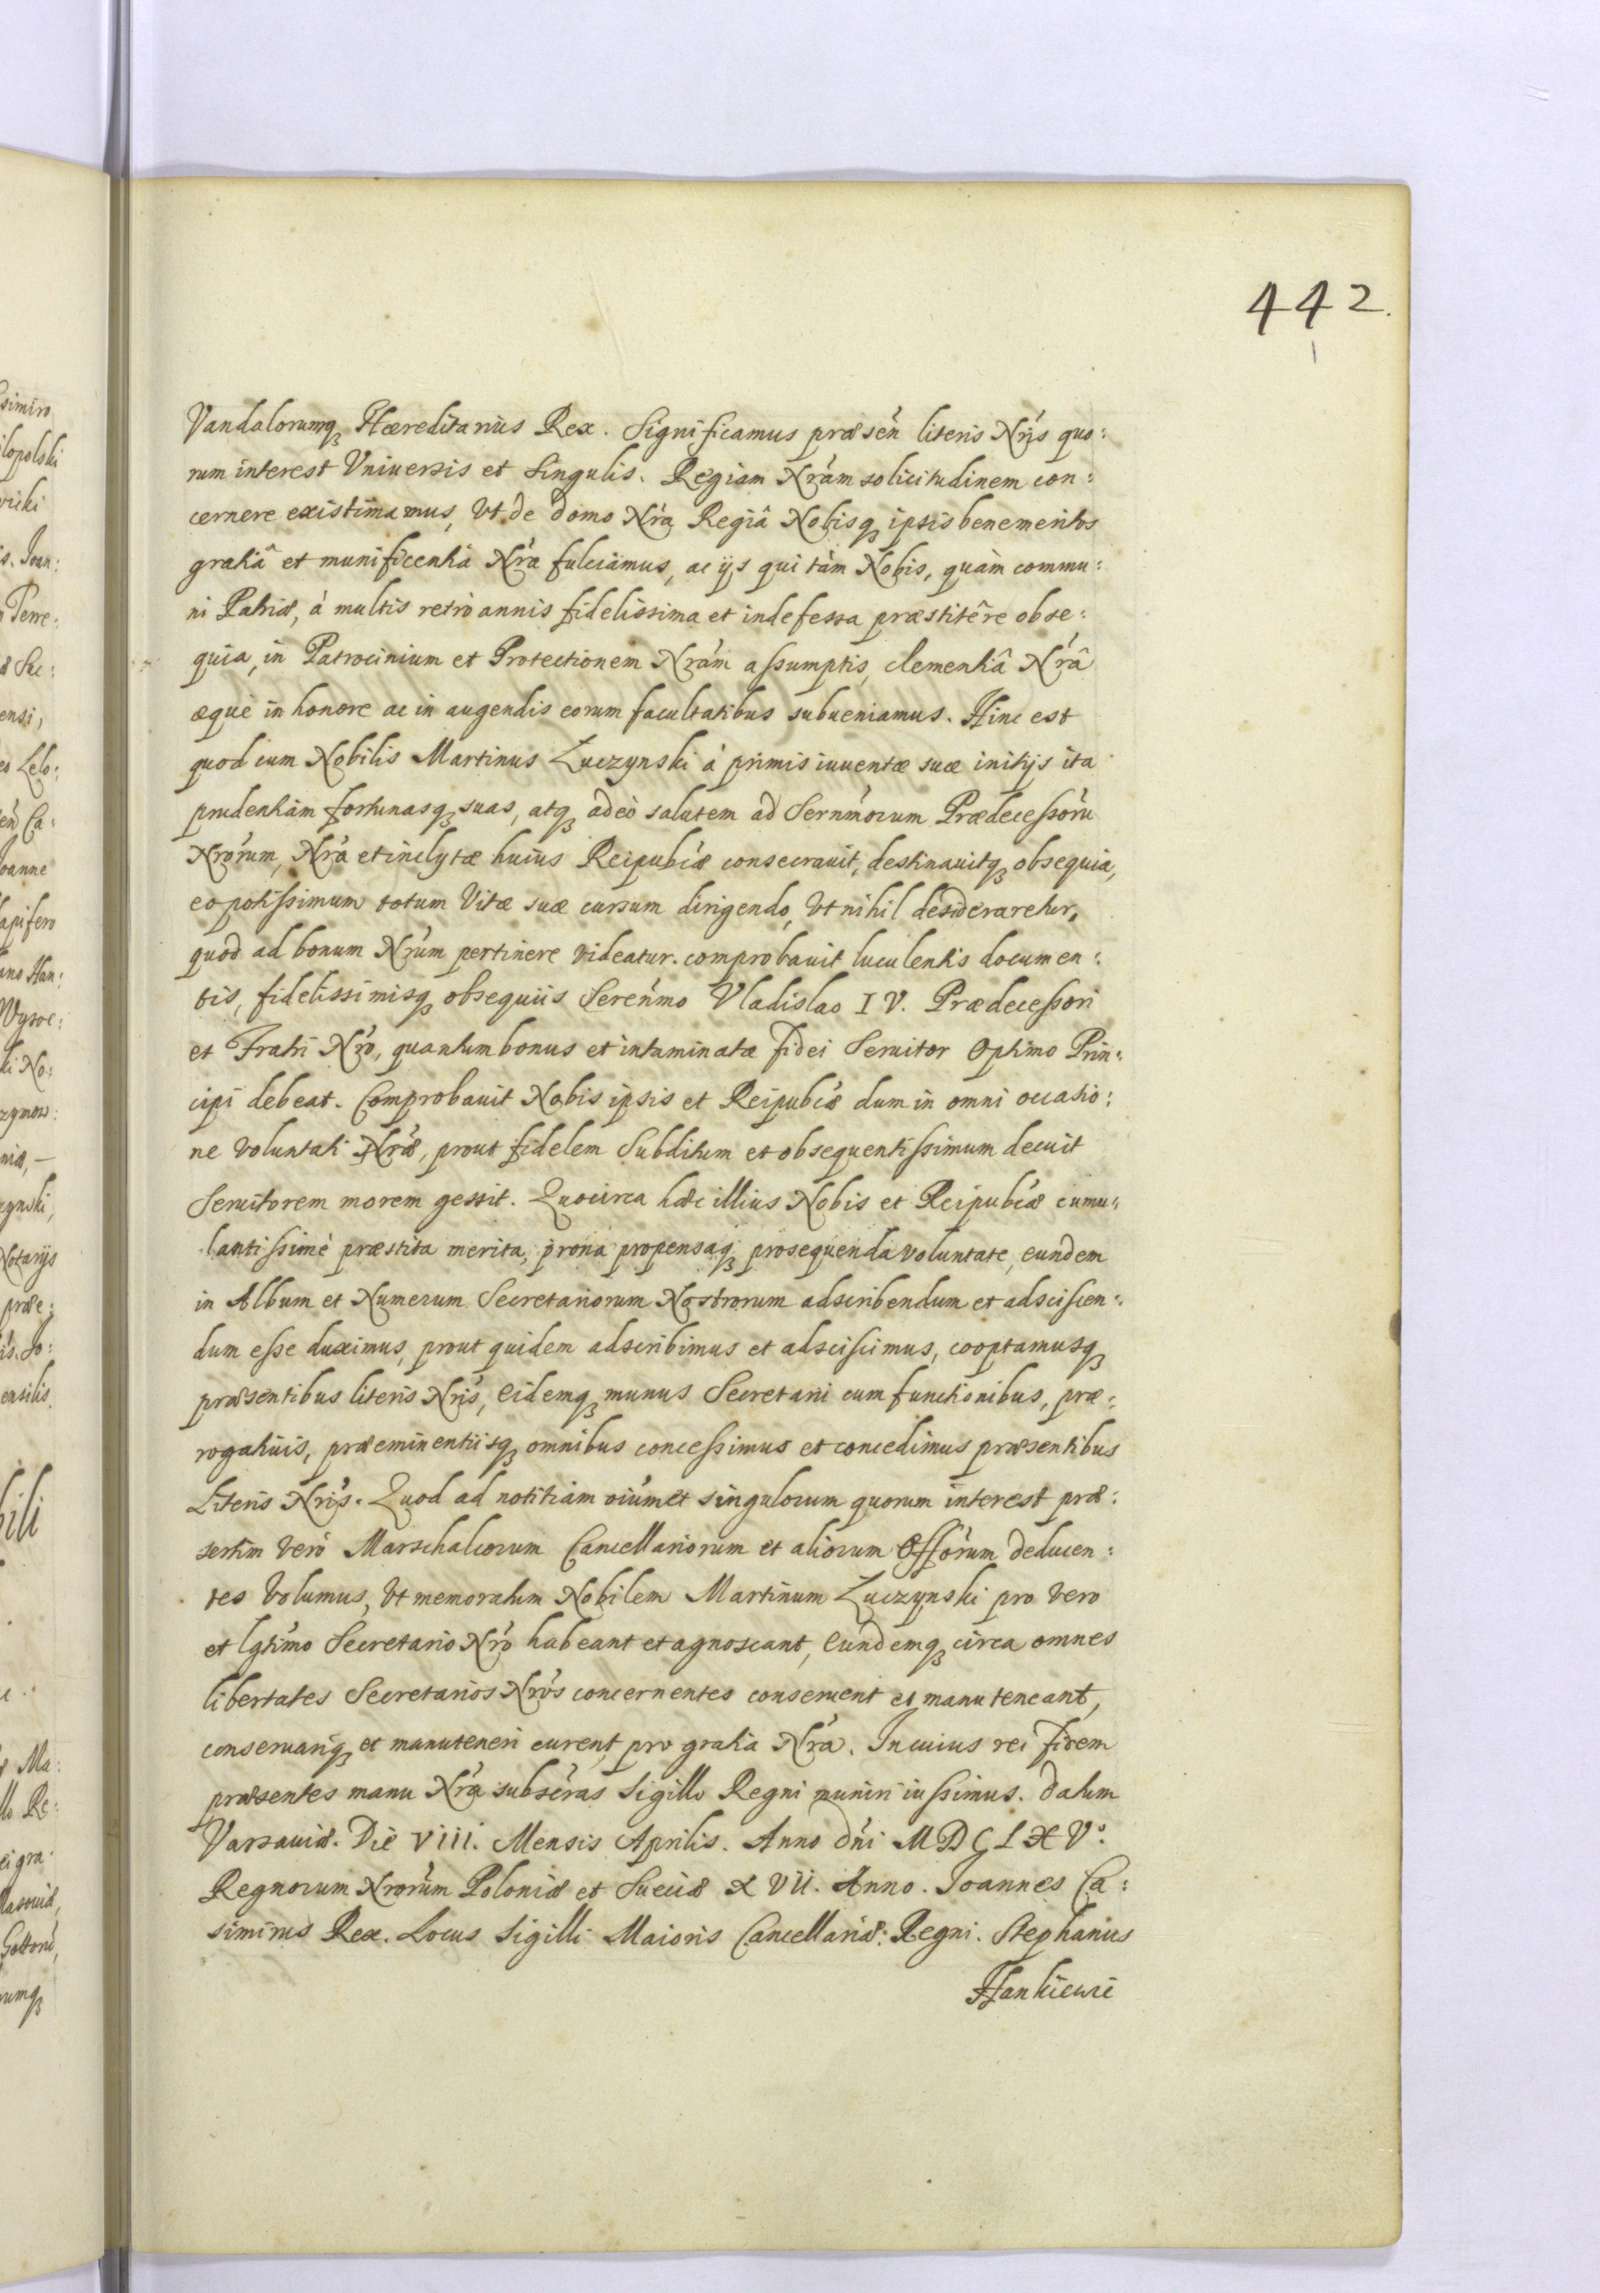 442.
Vandalorumq3 Hæreditarius Rex. Significamus præsen literis Nris quo:
rum interest Vniuersis et Singulis. Regiam Nram solicitudinem con:
cernere existimamus, Vt de domo Nra Regiâ Nobisq3 ipsis benemeritos
gratiâ et munificentiâ Nra fulciamus, ac ijs qui tàm Nobis, quàm commu:
ni Patriæ, à multis retrò annis fidelissima et indefessa præstitêre obse:
quia, in Patrocinium et Protectionem Nrám assumptis, clementiâ Nrâ
æquè in honore ac in augendis eorum facultatibus subueniamus. Hinc est
quod cum Nobilis Martinus Łuczynski à primis iuuentæ suæ initijs ita
prudentiam fortunasq3 suas, atq3 adeò salutem ad Sernmorum Prædecessoru
Nrorum, Nra et inclytæ huius Reipubcæ consecrauit, destinauitq3 obsequia,
eo potissimum totum Vitæ suæ cursum dirigendo, Vt nihil desideraretur,
quod ad bonum Nrum pertinere videatur. comprobauit luculentis documen:
tis, fidelissimisq3 obsequiis Serenmo Vladislao IV. Prædecessori
et Fratri Nro, quantum bonus et intaminatæ fidei Seruitor Optimo Prin:
cipi debeat. Comprobauit Nobis ipsis et Reipubcæ dum in omni occasio:
ne voluntati Nræ, prout fidelem Subditum et obsequentissimum decuit
Seruitorem morem gessit. Quocirca hæc illius Nobis et Reipubcæ cumu:
lantissimè præstita merita, prona propensaq3 prosequenda voluntate, eundem
in Album et Numerum Secretariorum Nostrorum adscribendum et adsciscen:
dum esse duximus, prout quidem adscribimus et adsciscimus, cooptamusq3
præsentibus literis Nris, Eidemq3 munus Secretarii cum functionibus, præ:
rogatiuis, præeminentiisq3 omnibus concessimus et concedimus præsentibus
Literis Nris. Quod ad notitiam oiumet singulorum quorum interest præ:
sertim verò Marschalcorum Cancellariorum et aliorum Offorum deducen:
tes Volumus, Vt memoratum Nobilem Martinum Łuczynski pro vero
et lgtimo Secretario Nro habeant et agnoscant, Eundemq3 circa omnes
libertates Secretarios Nros concernentes conseruent et manuteneant,
conseruariq3 et manuteneri curent, pro gratia Nra. In cuius rei fidem
præsentes manu Nra subseras Sigillo Regni muniri iussimus. Datum
Varsauiæ. Die VIII. Mensis Aprilis. Anno dni MDCLXVo.
Regnorum Nrorum Poloniæ et Sueciæ XVII. Anno. Joannes Ca:
simirus Rex. Locus Sigilli Maioris Cancellariæ: Regni. Stephanus
Hankiewic